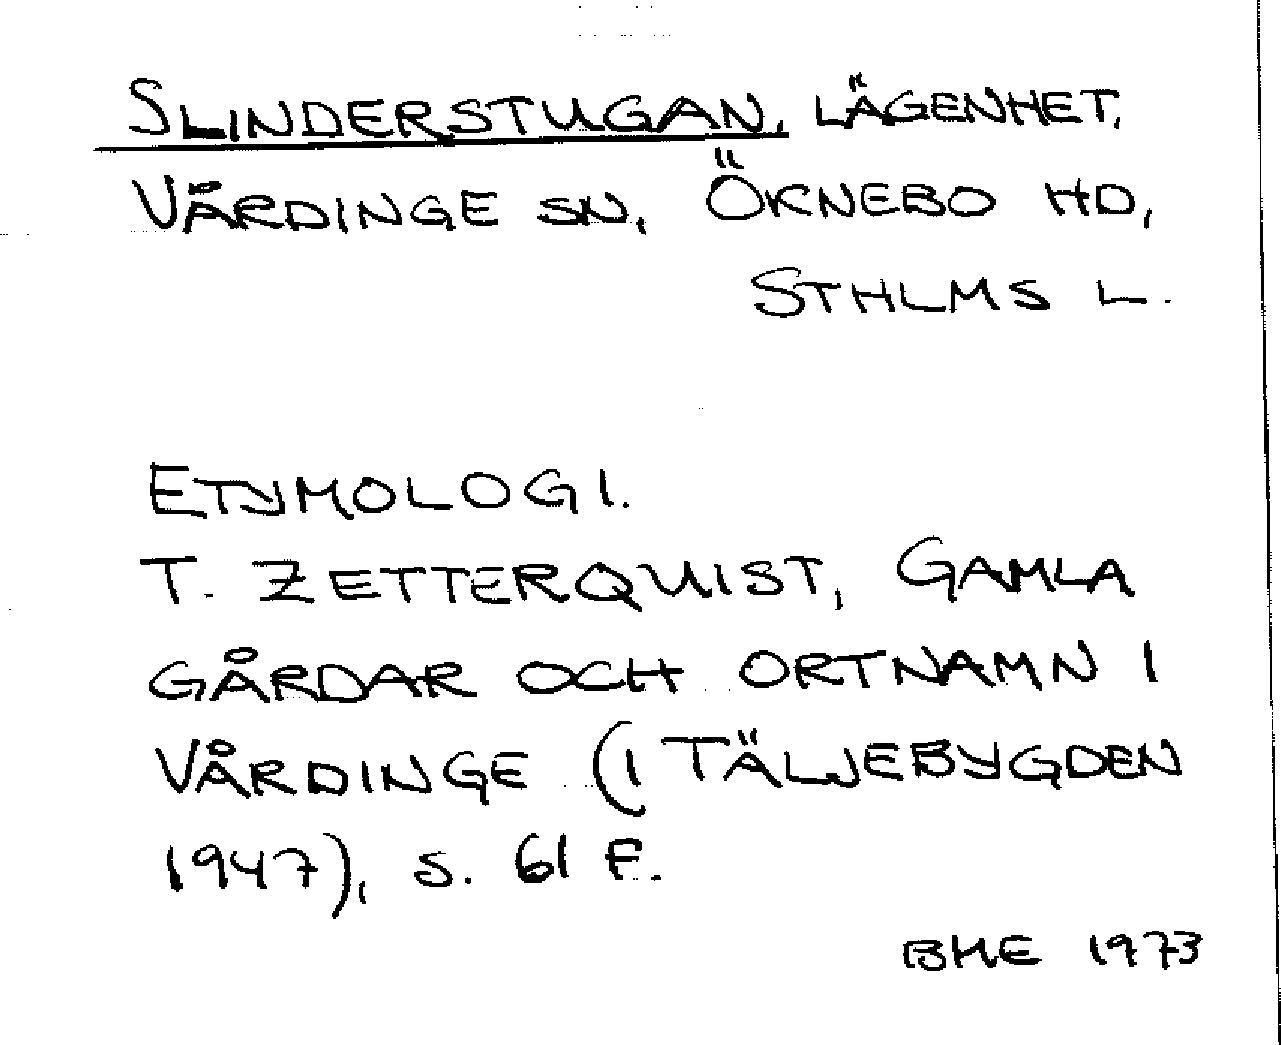 SLINDERSTUGAN, LÄGENHET,
VÅRDINGE SN, ÖKNEBO HD,
STHLMS L.
ETYMOLOGI.
T. ZETTERQUIST, GAMLA
GÅRDAR OCH ORTNAMN I
VÅRDINGE (I TÄLJEBYGDEN
1947), S. 61 F.
BME 1973